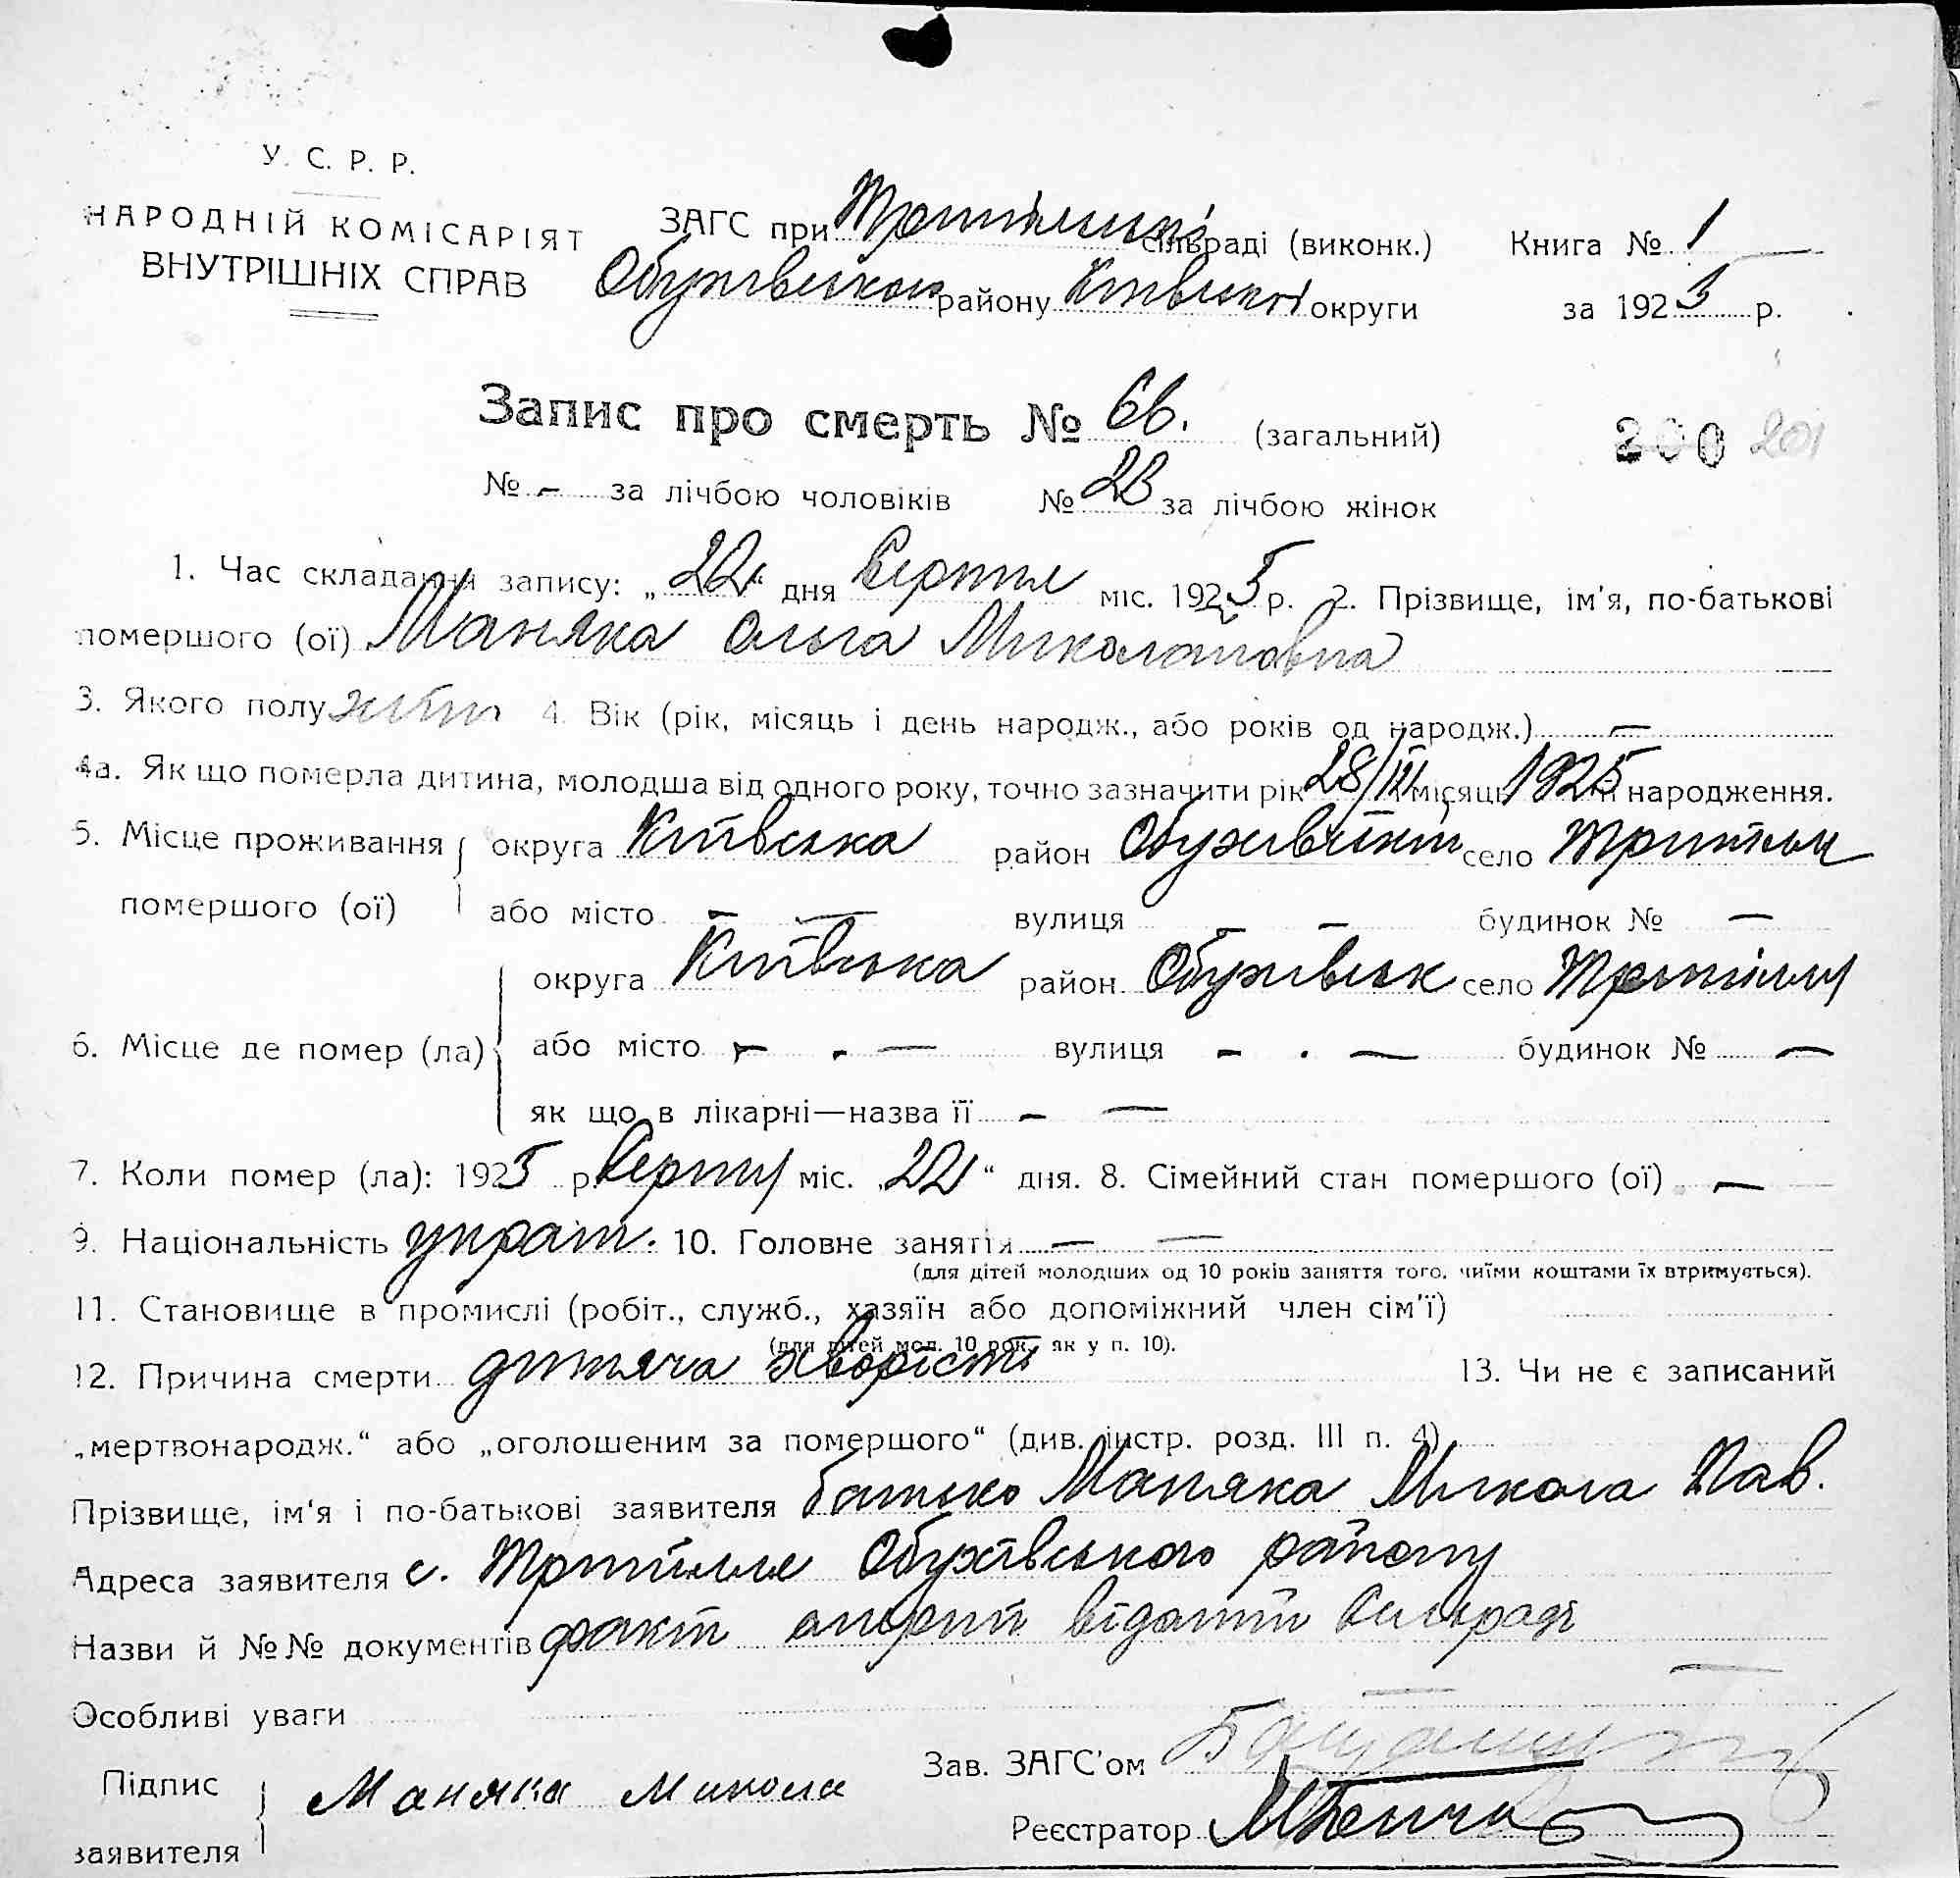 У. С. Р. Р.
НАРОДНІЙ КОМІСАРІЯТ
ВНУТРІШНІХ СПРАВ
ЗАГС при Трипільські сільраді (виконк.) Книга № 1
Обухівського району Київської округи за 1925 р.
Запис про смерть № 66. (загальний) 200 201
№ - за лічбою чоловіків № 23 за лічбою жінок
1. Час складання запису: „22“ дня Серпня міс. 1925 р. 2. Прізвище, ім'я, по-батькові
помершого (ої) Маняка Ольга Миколаївна
3. Якого полу 4. Вік (рік, місяць і день народж., або років од народж.) —
4а. Як що померла дитина, молодша від одного року, точно зазначити рік 28/III місяць 1925 народження.
5. Місце проживання округа Київська район Обухівський село Трипілля
помершого (ої) або місто — — вулиця — будинок № —
округа Київська район Обухівськ село Трипіллі
6. Місце де помер (ла) або місто - - — вулиця - . — будинок № —
як що в лікарні—назва її - —
7. Коли помер (ла): 1925 р. Серпня міс. „22“ дня. 8. Сімейний стан помершого (ої) —
9. Національність україн. 10. Головне заняття — —
(для дітей молодших од 10 років заняття того, чиїми коштами їх втримується).
11. Становище в промислі (робіт., служб., хазяїн або допоміжний член сім'ї)
(для дітей мол. 10 рок. як у п. 10).
12. Причина смерти дитяча хворість 13. Чи не є записаний
„мертвонародж.“ або „оголошеним за помершого“ (див. інстр. розд. III п. 4)
Прізвище, ім'я і по-батькові заявителя батько Маняка Микола Пав.
Адреса заявителя с. Трипілля Обухівського району
Назви й №№ документів факт смерти відомий Сільраді
Особливі уваги — —
Підпис заявителя Маняка Микола
Зав. ЗАГС'ом
Реєстратор